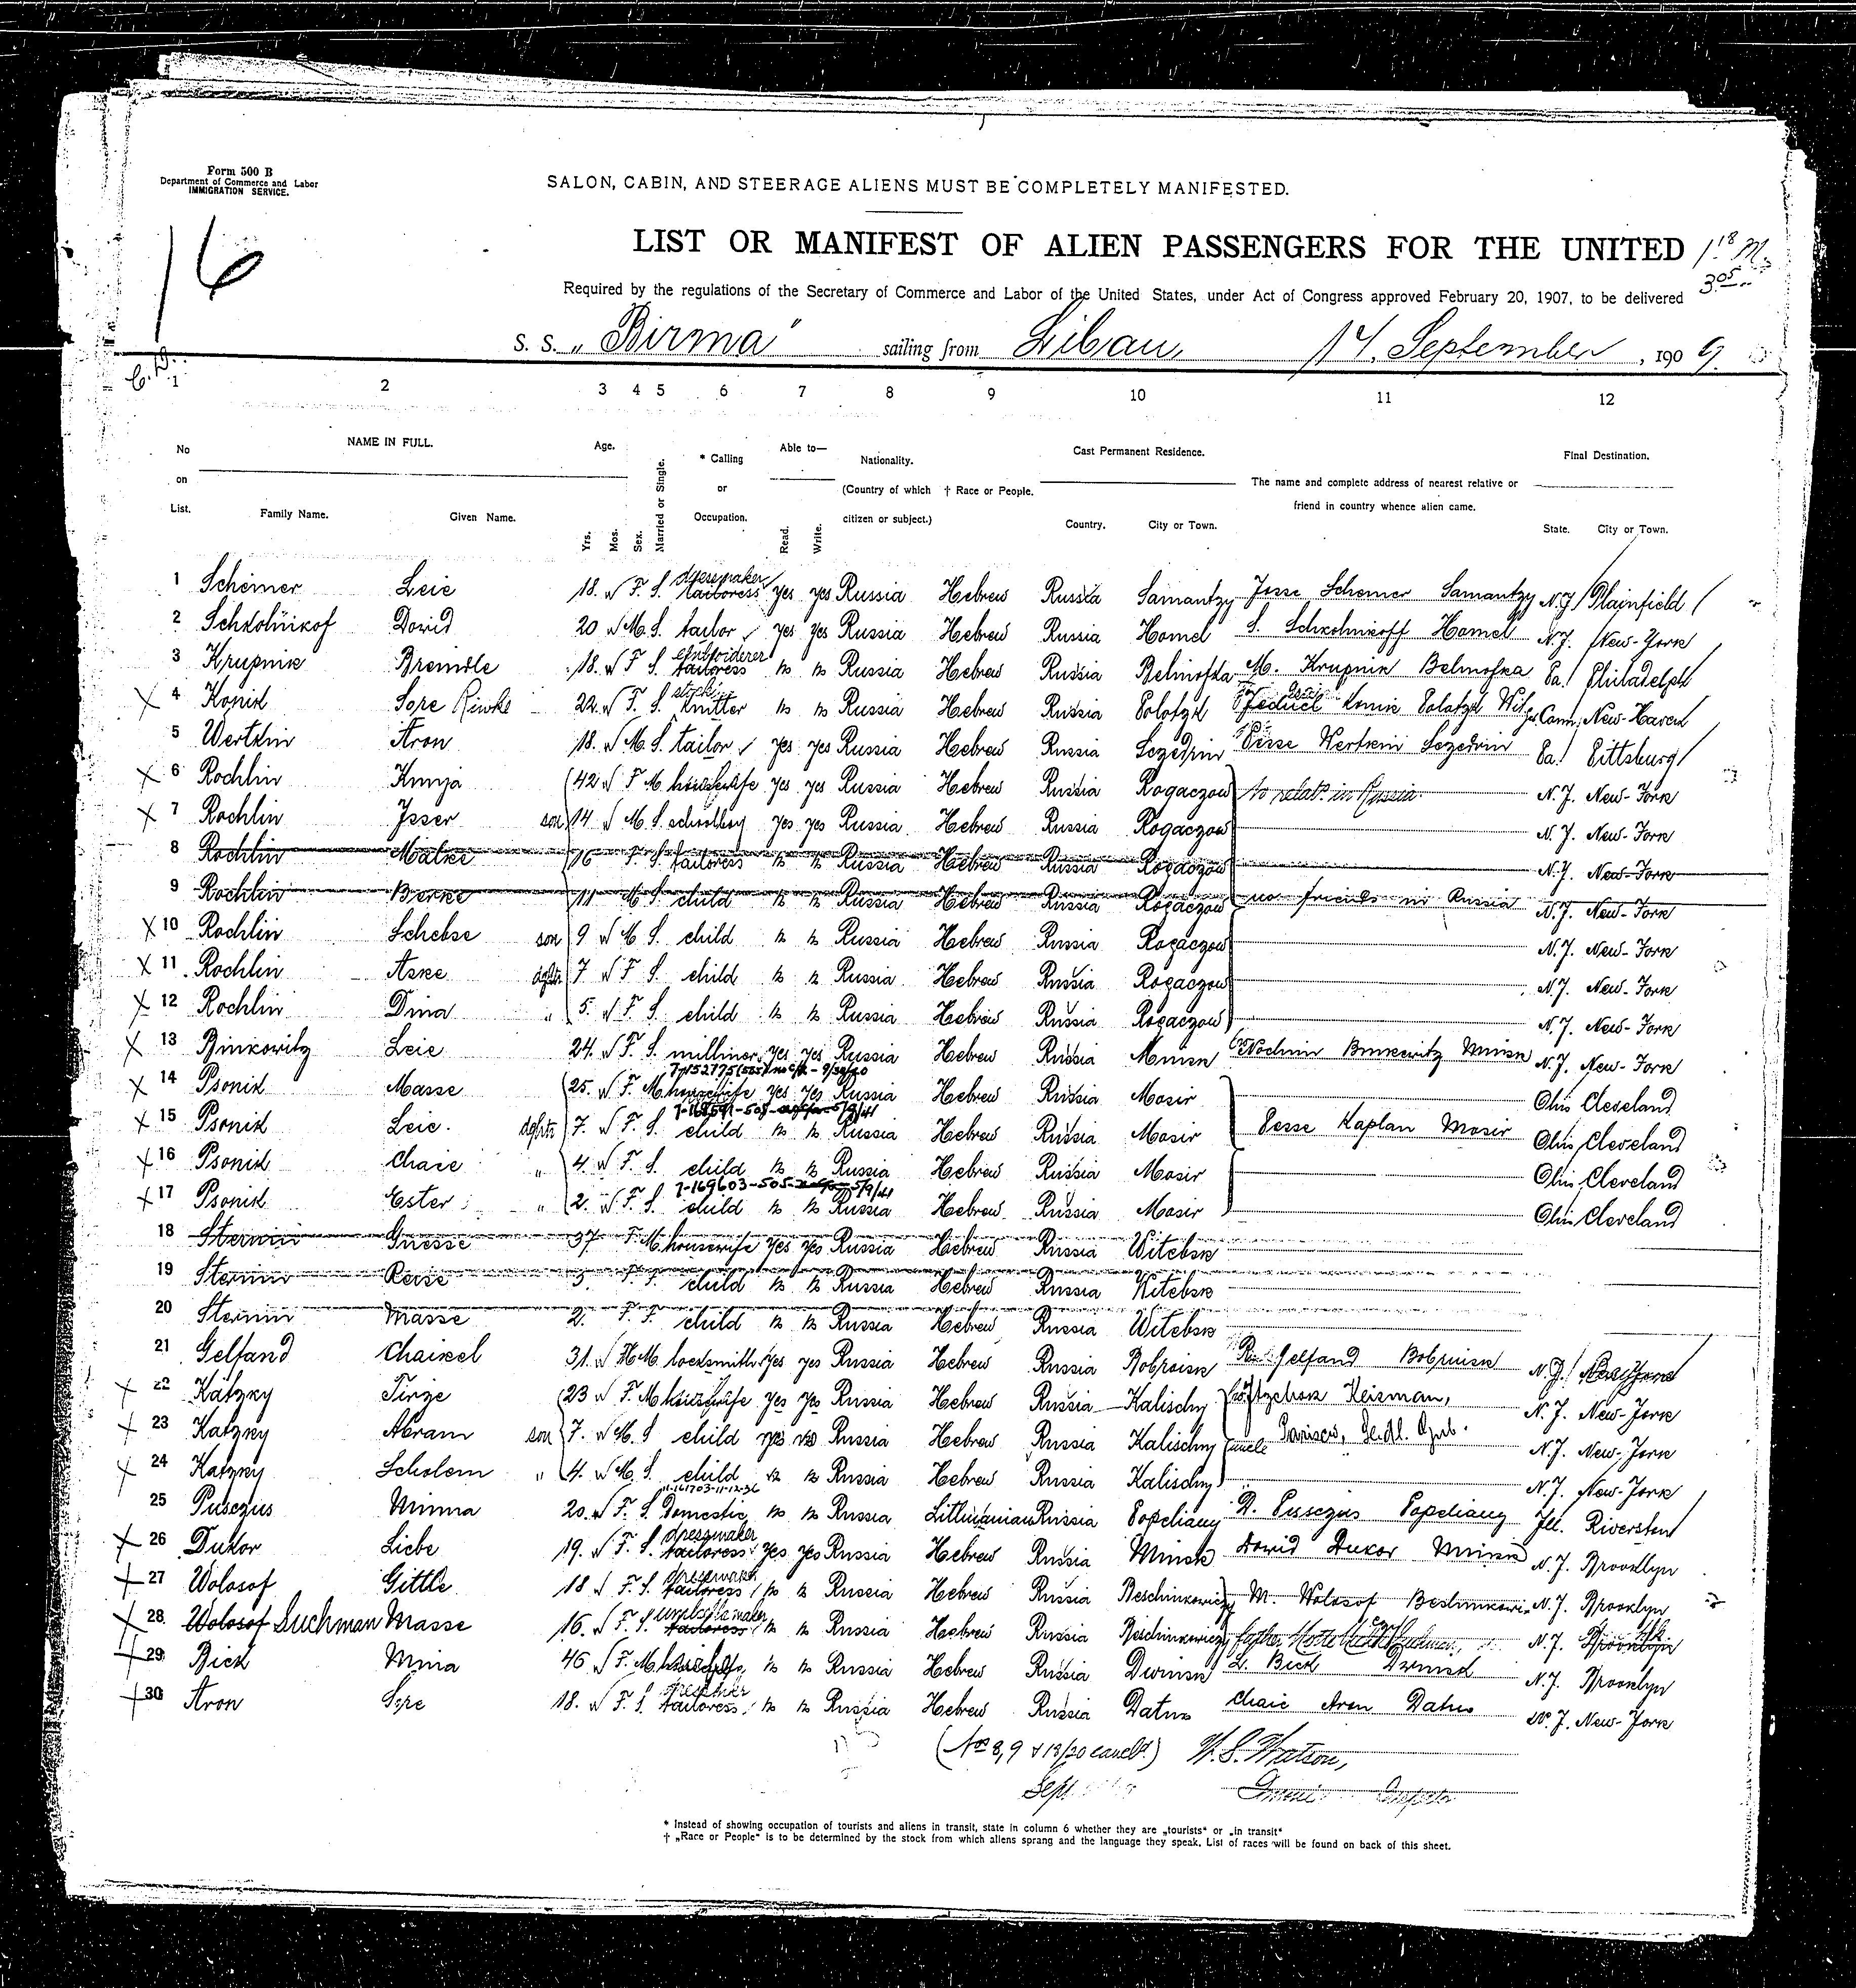 Form 500 B
Department of Commerce and Labor
IMMIGRATION SERVICE.
16
SALON, CABIN, AND STEERAGE ALIENS MUST BE COMPLETELY MANIFESTED.
LIST OR MANIFEST OF ALIEN PASSENGERS FOR THE UNITED
Required by the regulations of the Secretary of Commerce and Labor of the United States, under Act of Congress approved February 20, 1907, to be delivered
S. S. „ Birma" sailing from Libau, 14. September, 1909.
1 2 3 4 5 6 7 8 9 10 11 12
No on List. NAME IN FULL. Family Name. Given Name. Age. Yrs. Mos. Sex. Married or Single. * Calling or Occupation. Able to— Read. Write. Nationality. (Country of which citizen or subject.) † Race or People. Cast Permanent Residence. Country. City or Town. The name and complete address of nearest relative or friend in country whence alien came. Final Destination. State. City or Town.
1 Schemer Leie 18. F. S. dressmaker tailoress yes yes Russia Hebrew Russia Samantzy Schemer Samantzy N.J. Plainfield
2 Schkolnikof Dowid 20 M. S. tailor yes yes Russia Hebrew Russia Homel S. Schkolnikoff Homel N.J. New-York
3 Krupnik Breindle 18. F. S. tailoress Russia Hebrew Russia M. Krupnik Pa. Philadelph
4 Konik Sore Riwke 22 F. S. knitter Russia Hebrew Russia Polotzk Konik Polatzk Conn. New-Haven
5 Wertkin Aron 18. M. S. tailor yes yes Russia Hebrew Russia Sczedrin Wertkin Sczedrin Pa. Pittsburg
6 Rochlin 42 F M housewife yes yes Russia Hebrew Russia Rogaczow no relat. in Russia N.J. New-York
7 Rochlin Isser son 14 M S schoolboy yes yes Russia Hebrew Russia Rogaczow N.J. New-York
8 Rochlin Matke 16 F. S. tailoress Russia Hebrew Russia Rogaczow N.J. New-York
9 Rochlin Berke 11 M S child Russia Hebrew Russia Rogaczow no friends in Russia N.J. New-York
10 Rochlin Schebse son 9 M S. child Russia Hebrew Russia Rogaczow N.J. New-York
11 Rochlin Aske dghtr 7 F S. child Russia Hebrew Russia Rogaczow N.J. New-York
12 Rochlin Dina " 5 F S. child Russia Hebrew Russia Rogaczow N.J. New-York
13 Binkowitz Leie 24 F. S. milliner yes yes Russia Hebrew Russia Minsk Minsk N.J. New-York
14 Psonik Masse 25. F. M. housewife yes yes Russia Hebrew Russia Mosir Ohio Cleveland
15 Psonik Leie dghtr 7. F. S. child Russia Hebrew Russia Mosir Pesse Kaplan Mosir Ohio Cleveland
16 Psonik Chaie " 4 F. S. child Russia Hebrew Russia Mosir Ohio Cleveland
7-169603-505 5/9/41
17 Psonik Ester " 2. F. S. child Russia Hebrew Russia Mosir Ohio Cleveland
18 Sternin Gnesse 37 F. M. housewife yes yes Russia Hebrew Russia Witebsk
19 Sternin Reise child Russia Hebrew Russia Witebsk
20 Sternin Masse 2. child Russia Hebrew Russia Witebsk
21 Gelfand Chaikel 31. M locksmith yes yes Russia Hebrew Russia Bobroisk Gelfand Bobruisk N.J.
22 Katzky Tirze 23 F. M. housewife yes yes Russia Hebrew Russia Kalischy Keisman, N.J. New-York
23 Katzky Abram son 7. M. S child Russia Hebrew Russia Kalischy uncle N.J. New-York
24 Katzky Scholem " 4. M. S. child Russia Hebrew Russia Kalischy N.J. New-York
11-161703-11-12-36
25 Pusczus Minna 20. F. S. Domestic Russia Lithuanian Russia Popeliany Pusczus Popeliany Ill. Riverston
26 Dukor Liebe 19. F. S. dressmaker tailoress yes yes Russia Hebrew Russia Minsk Dowid Dukor Minsk N.J. Brooklyn
27 Wolosof Gittle 18 F. S. tailoress Russia Hebrew Russia Beschinkowiczy M. Wolosof Beshinkowi N.J. Brooklyn
28 Wolosof Suchman Masse 16. F. S. tailoress Russia Hebrew Russia Beschinkowiczy father N.J. Brooklyn
29 Bick Mina 46 F. M. Russia Hebrew Russia Dwinsk Bick Dwinsk N.J. Brooklyn
30 Aron Sore 18. F. S. tailoress Russia Hebrew Russia Datno Chaie Aron Datno N.J. New-York
(Nos 8, 9 & 18/20 canclt.) W. S. Watson,
Sept
* Instead of showing occupation of tourists and aliens in transit, state in column 6 whether they are „tourists" or „in transit"
† „Race or People" is to be determined by the stock from which aliens sprang and the language they speak. List of races will be found on back of this sheet.